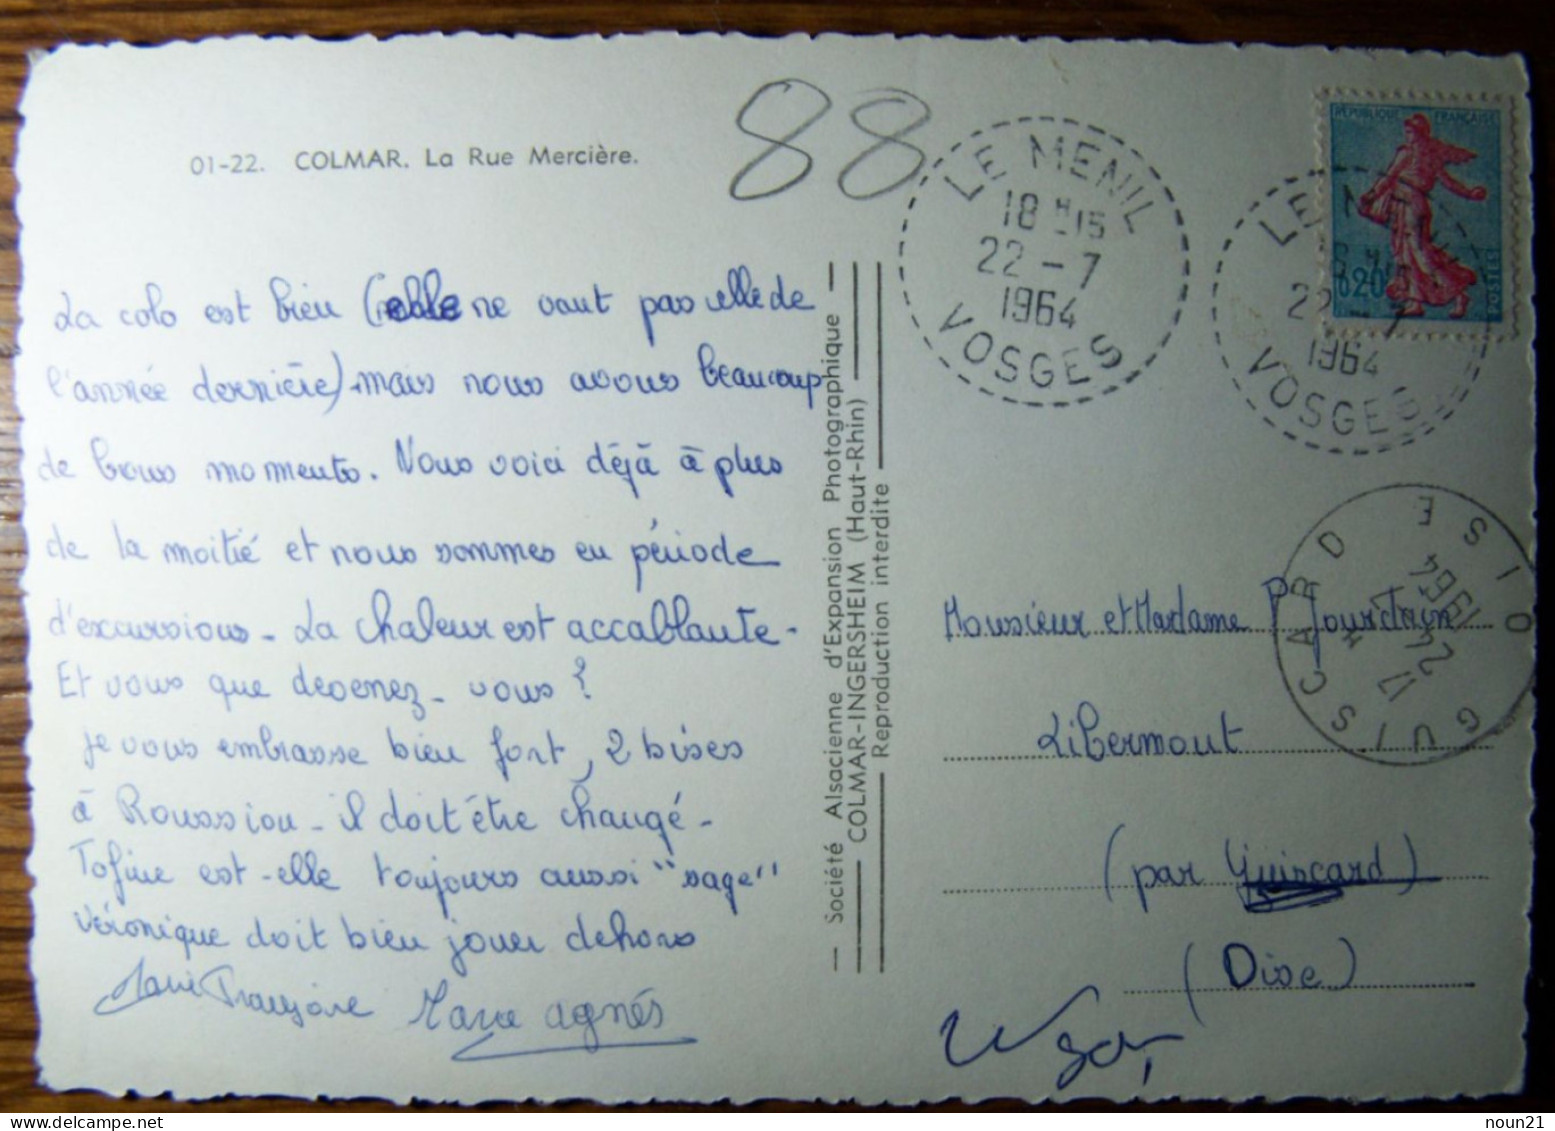 01-22. COLMAR. La Rue Mercière.
88
La colo est bien (elle ne vaut pas celle de
l'année dernière) mais nous avons beaucoup
de bons moments. Nous voici déjà à plus
de la moitié et nous sommes en période
d'excursions - La chaleur est accablante -
Et vous que devenez-vous ?
je vous embrasse bien fort, 2 bises
à Roussiou - il doit être changé -
Tofine est-elle toujours aussi "sage"
Véronique doit bien jouer dehors
Marie Françoise Marie agnés
— Société Alsacienne d'Expansion Photographique —
— COLMAR-INGERSHEIM (Haut-Rhin) —
— Reproduction interdite —
LE MENIL
18 H 15
22 - 7
1964
VOSGES
RÉPUBLIQUE FRANÇAISE
0,20
POSTES
LE MENIL
22 - 7
1964
VOSGES
GUISCARD OISE
17 H
24 - 7
1964
Monsieur et Madame P Jourdain
Libermont
(par Guiscard)
(Oise)